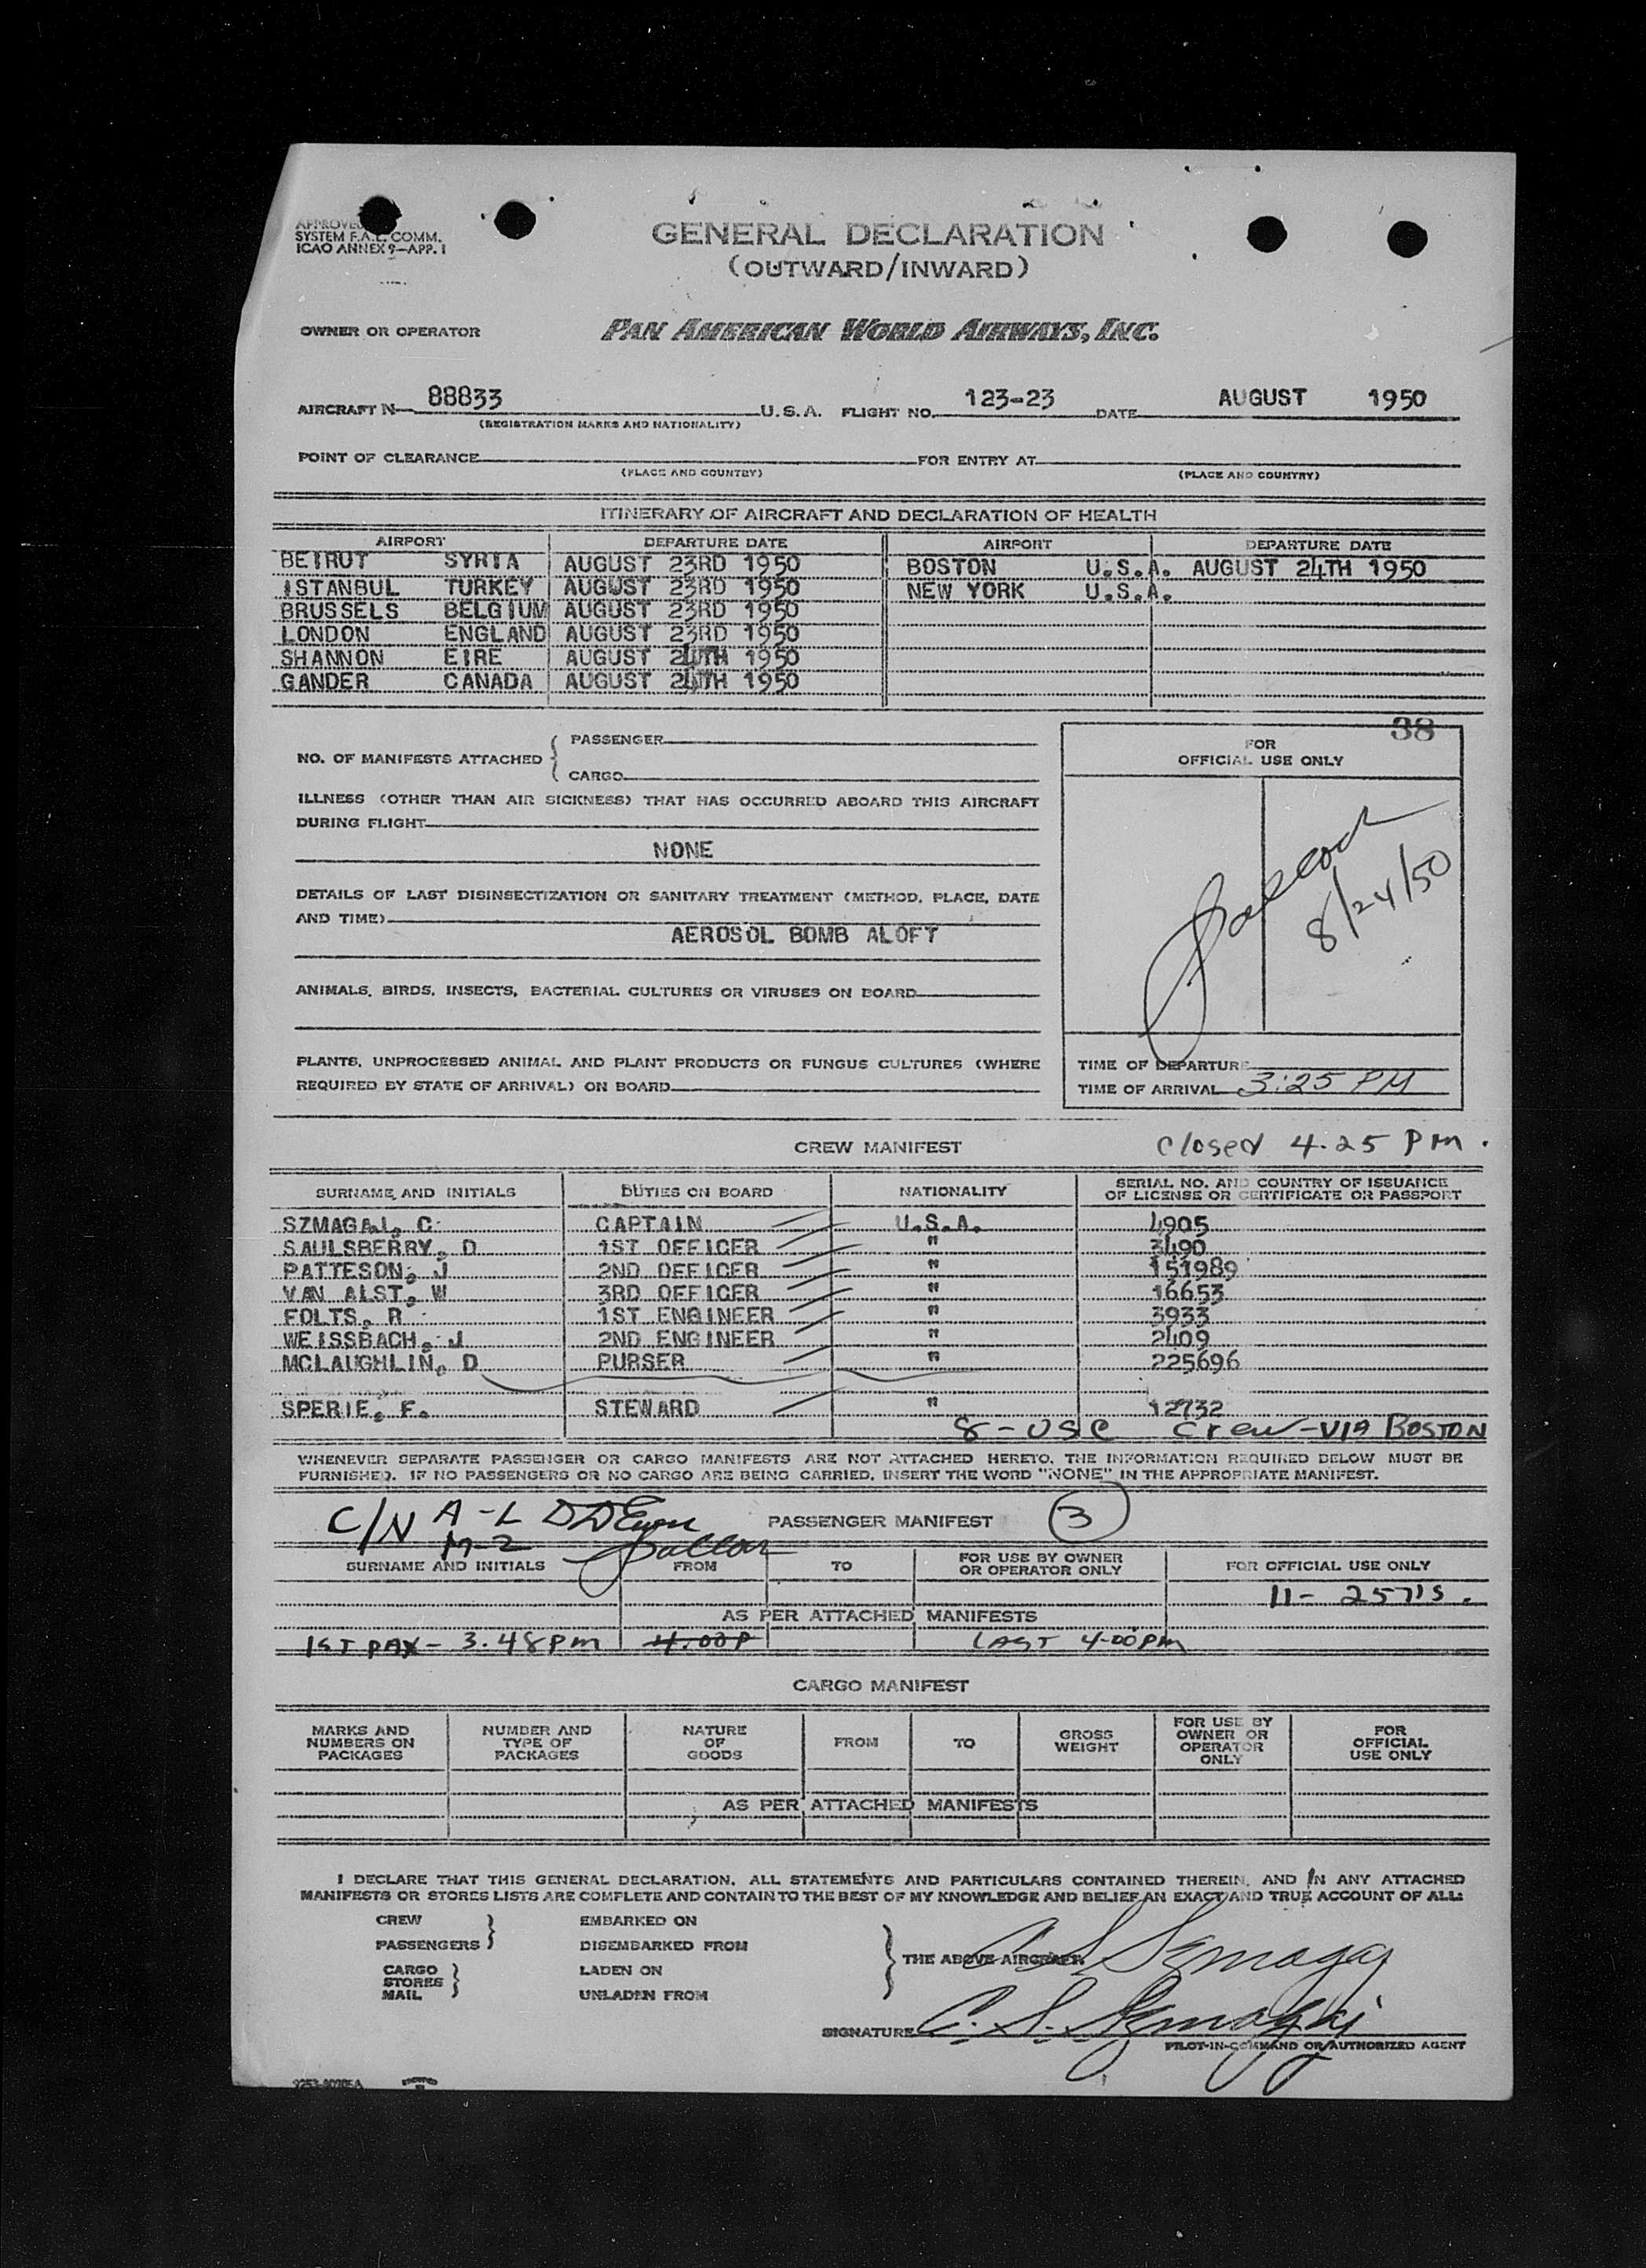 APPROVED
SYSTEM F.A.L. COMM.
ICAO ANNEX 9—APP. 1
GENERAL DECLARATION
(OUTWARD/INWARD)
OWNER OR OPERATOR PAN AMERICAN WORLD AIRWAYS, INC.
AIRCRAFT N— 88833 U.S.A. FLIGHT NO. 123-23 DATE AUGUST 1950
(REGISTRATION MARKS AND NATIONALITY)
POINT OF CLEARANCE FOR ENTRY AT
(PLACE AND COUNTRY) (PLACE AND COUNTRY)
ITINERARY OF AIRCRAFT AND DECLARATION OF HEALTH
AIRPORT DEPARTURE DATE AIRPORT DEPARTURE DATE
BEIRUT SYRIA AUGUST 23RD 1950 BOSTON U.S.A. AUGUST 24TH 1950
ISTANBUL TURKEY AUGUST 23RD 1950 NEW YORK U.S.A.
BRUSSELS BELGIUM AUGUST 23RD 1950
LONDON ENGLAND AUGUST 23RD 1950
SHANNON EIRE AUGUST 24TH 1950
GANDER CANADA AUGUST 24TH 1950
38
NO. OF MANIFESTS ATTACHED { PASSENGER
CARGO
FOR
OFFICIAL USE ONLY
ILLNESS (OTHER THAN AIR SICKNESS) THAT HAS OCCURRED ABOARD THIS AIRCRAFT
DURING FLIGHT
NONE
8/24/50
DETAILS OF LAST DISINSECTIZATION OR SANITARY TREATMENT (METHOD, PLACE, DATE
AND TIME)
AEROSOL BOMB ALOFT
ANIMALS, BIRDS, INSECTS, BACTERIAL CULTURES OR VIRUSES ON BOARD
PLANTS, UNPROCESSED ANIMAL AND PLANT PRODUCTS OR FUNGUS CULTURES (WHERE
REQUIRED BY STATE OF ARRIVAL) ON BOARD
TIME OF DEPARTURE
TIME OF ARRIVAL 3:25 PM
CREW MANIFEST closed 4.25 PM.
SURNAME AND INITIALS DUTIES ON BOARD NATIONALITY SERIAL NO. AND COUNTRY OF ISSUANCE
OF LICENSE OR CERTIFICATE OR PASSPORT
SZMAGAJ, C. CAPTAIN U.S.A. 4905
SAULSBERRY, D 1ST OFFICER " 3490
PATTESON, J 2ND OFFICER " 151989
VAN ALST, W 3RD OFFICER " 16653
FOLTS, R 1ST ENGINEER " 3933
WEISSBACH, J 2ND ENGINEER " 2409
MCLAUGHLIN, D PURSER " 225696
SPERIE, F. STEWARD " 12732
8-USC Crew-VIA BOSTON
WHENEVER SEPARATE PASSENGER OR CARGO MANIFESTS ARE NOT ATTACHED HERETO, THE INFORMATION REQUIRED BELOW MUST BE
FURNISHED. IF NO PASSENGERS OR NO CARGO ARE BEING CARRIED, INSERT THE WORD "NONE" IN THE APPROPRIATE MANIFEST.
C/N A-L
M-Z
PASSENGER MANIFEST 3
SURNAME AND INITIALS FROM TO FOR USE BY OWNER
OR OPERATOR ONLY FOR OFFICIAL USE ONLY
11- 257's.
AS PER ATTACHED MANIFESTS
1ST PAX- 3.48PM 4.00P LAST 4-00PM
CARGO MANIFEST
MARKS AND
NUMBERS ON
PACKAGES
NUMBER AND
TYPE OF
PACKAGES
NATURE
OF
GOODS
FROM
TO
GROSS
WEIGHT
FOR USE BY
OWNER OR
OPERATOR
ONLY
FOR
OFFICIAL
USE ONLY
AS PER ATTACHED MANIFESTS
I DECLARE THAT THIS GENERAL DECLARATION, ALL STATEMENTS AND PARTICULARS CONTAINED THEREIN, AND IN ANY ATTACHED
MANIFESTS OR STORES LISTS ARE COMPLETE AND CONTAIN TO THE BEST OF MY KNOWLEDGE AND BELIEF AN EXACT AND TRUE ACCOUNT OF ALL:
CREW } EMBARKED ON
PASSENGERS DISEMBARKED FROM
CARGO
STORES } LADEN ON
MAIL UNLADEN FROM
} THE ABOVE AIRCRAFT C S Szmagaj
SIGNATURE C. S. Szmagaj
PILOT-IN-COMMAND OR AUTHORIZED AGENT